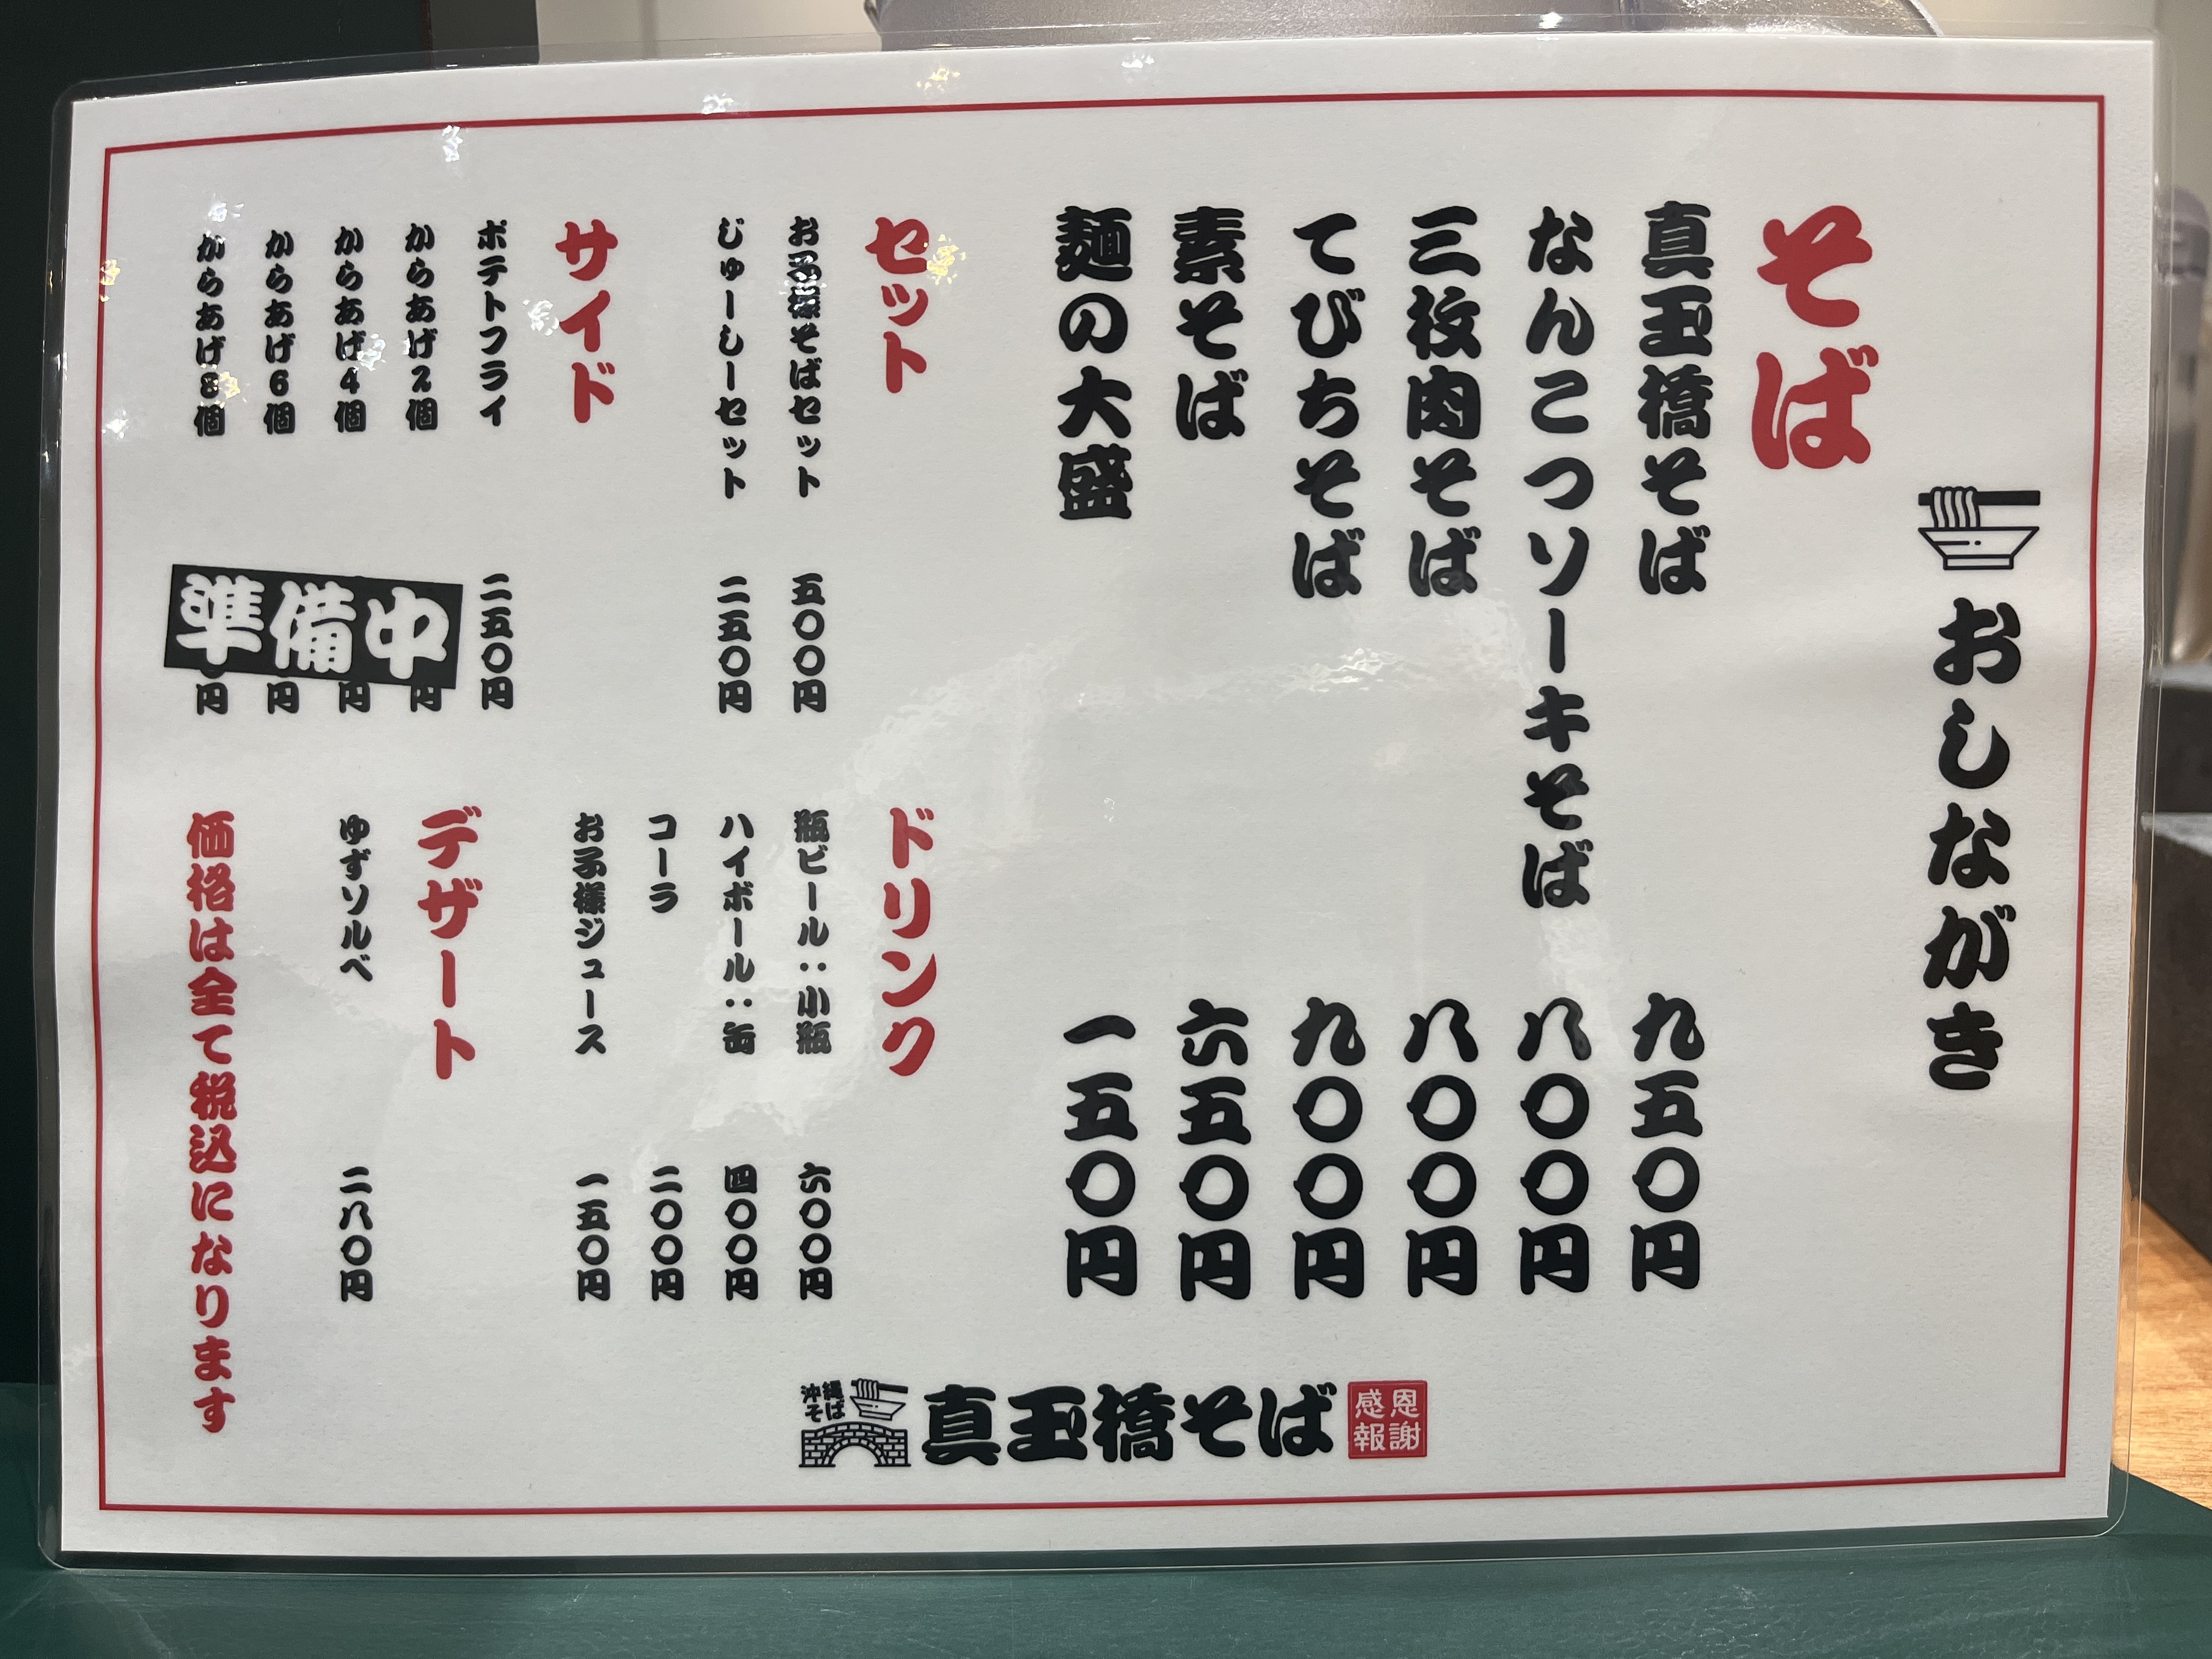 おしながき
そば
真玉橋そば 九五〇円
なんこつソーキそば 八〇〇円
三枚肉そば 八〇〇円
てびちそば 九〇〇円
素そば 六五〇円
麺の大盛 一五〇円
セット
お子様そばセット 五〇〇円
じゅーしーセット 二五〇円
サイド
ポテトフライ 二五〇円
からあげ2個 円
からあげ4個 円
からあげ6個 円
からあげ8個 円
準備中
ドリンク
瓶ビール:小瓶 六〇〇円
ハイボール:缶 四〇〇円
コーラ 二〇〇円
お子様ジュース 一五〇円
デザート
ゆずソルベ 二八〇円
価格は全て税込になります
沖縄そば
真玉橋そば
恩謝
感報